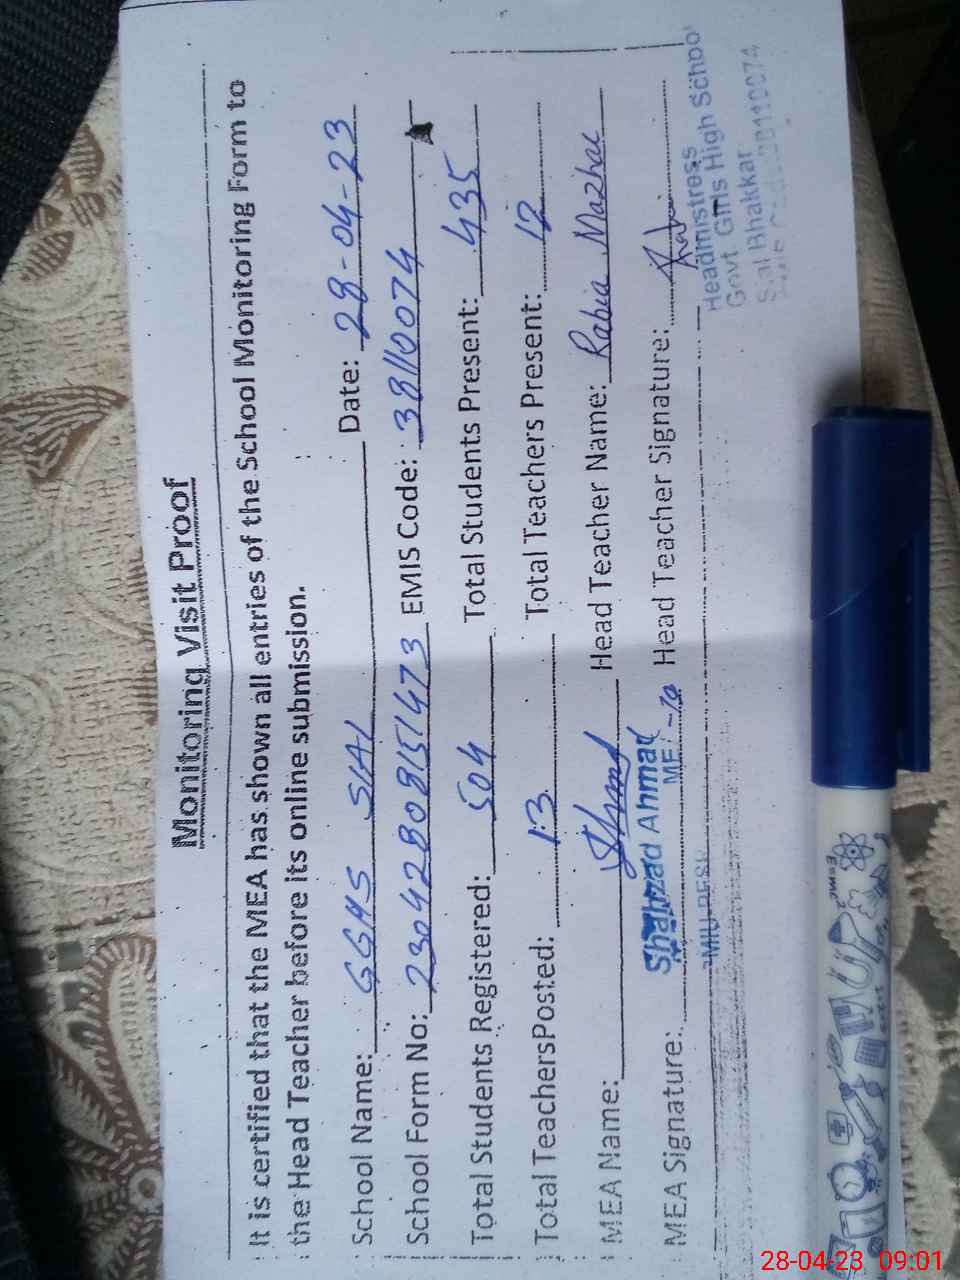 Monitoring Visit Proof
It is certified that the MEA has shown all entries of the School Monitoring Form to
the Head Teacher before its online submission.
School Name: GGHS SIAL Date: 28-04-23
School Form No: 23042808151473 EMIS Code: 38110074
Total Students Registered: 504 Total Students Present: 435
Total TeachersPosted: 13 Total Teachers Present: 12
MEA Name: Head Teacher Name: Rabia Mazhar
Shahzad Ahmad
MEA Signature: Head Teacher Signature:
Headmistress
Govt. Girls High School
Sial Bhakkar
E=MC²
28-04-23 09:01